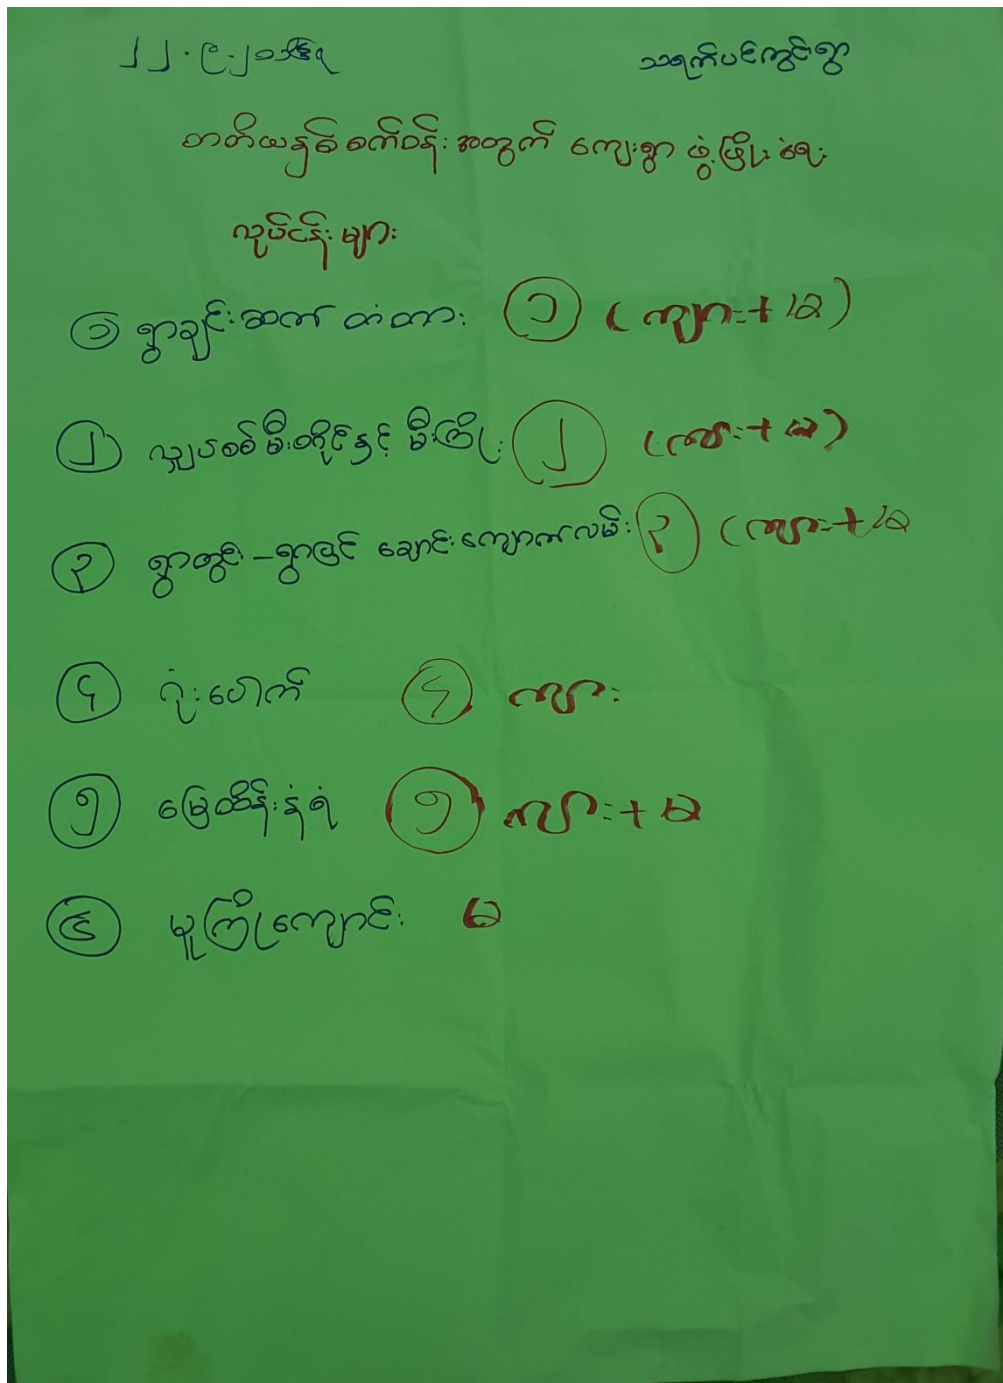 ၂၂.၉.၂၀၁၆ သရက်ပင်ကွင်းရွာ
တတိယနှစ်စက်ဝန်းအတွက် ကျေးရွာ ဖွံ့ဖြိုးရေး
လုပ်ငန်းများ
၁ ရွာချင်းဆက် တံတား ၁ (ကျား+မ)
၂ လျှပ်စစ်မီးတိုင်နှင့် မီးကြိုး ၂ (ကျား+မ)
၃ ရွာတွင်း-ရွာပြင် ချောင်းကျောက်လမ်း ၃ (ကျား+မ
၄ ဂုံးပေါက် ၄ ကျား
၅ မြေထိန်းနံရံ ၅ ကျား+မ
၆ မူကြိုကျောင်း မ